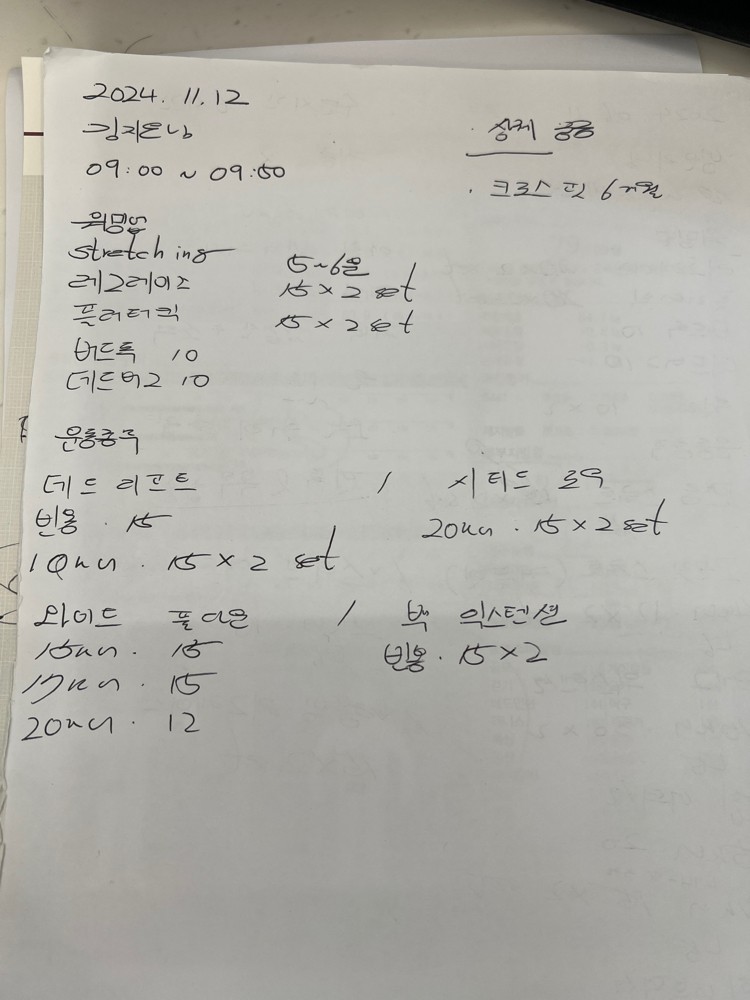 2024. 11. 12
김지은님
09:00 ~ 09:50
· 상체 운동
· 크로스핏 6개월
워밍업
stretching 5~6분
레그레이즈 15 × 2 set
플러터킥 15 × 2 set
버드독 10
데드버그 10
운동종류
데드 리프트 / 시티드 로우
빈봉 · 15
20kg · 15 × 2 set
10kg · 15 × 2 set
와이드 풀다운 / 백 익스텐션
15kg · 15
빈봉 · 15 × 2
17kg · 15
20kg · 12